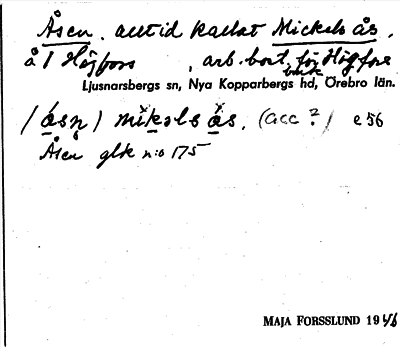 Åsen, alltid kallat Mickels ås,
å 1 Högfors, arb. bost. för Högfors
bruk
Ljusnarsbergs sn, Nya Kopparbergs hd, Örebro län.
/åsn̥/ mikəls ås. (acc ?) e 56
Åsen glk n:o 175
MAJA FORSSLUND 1946